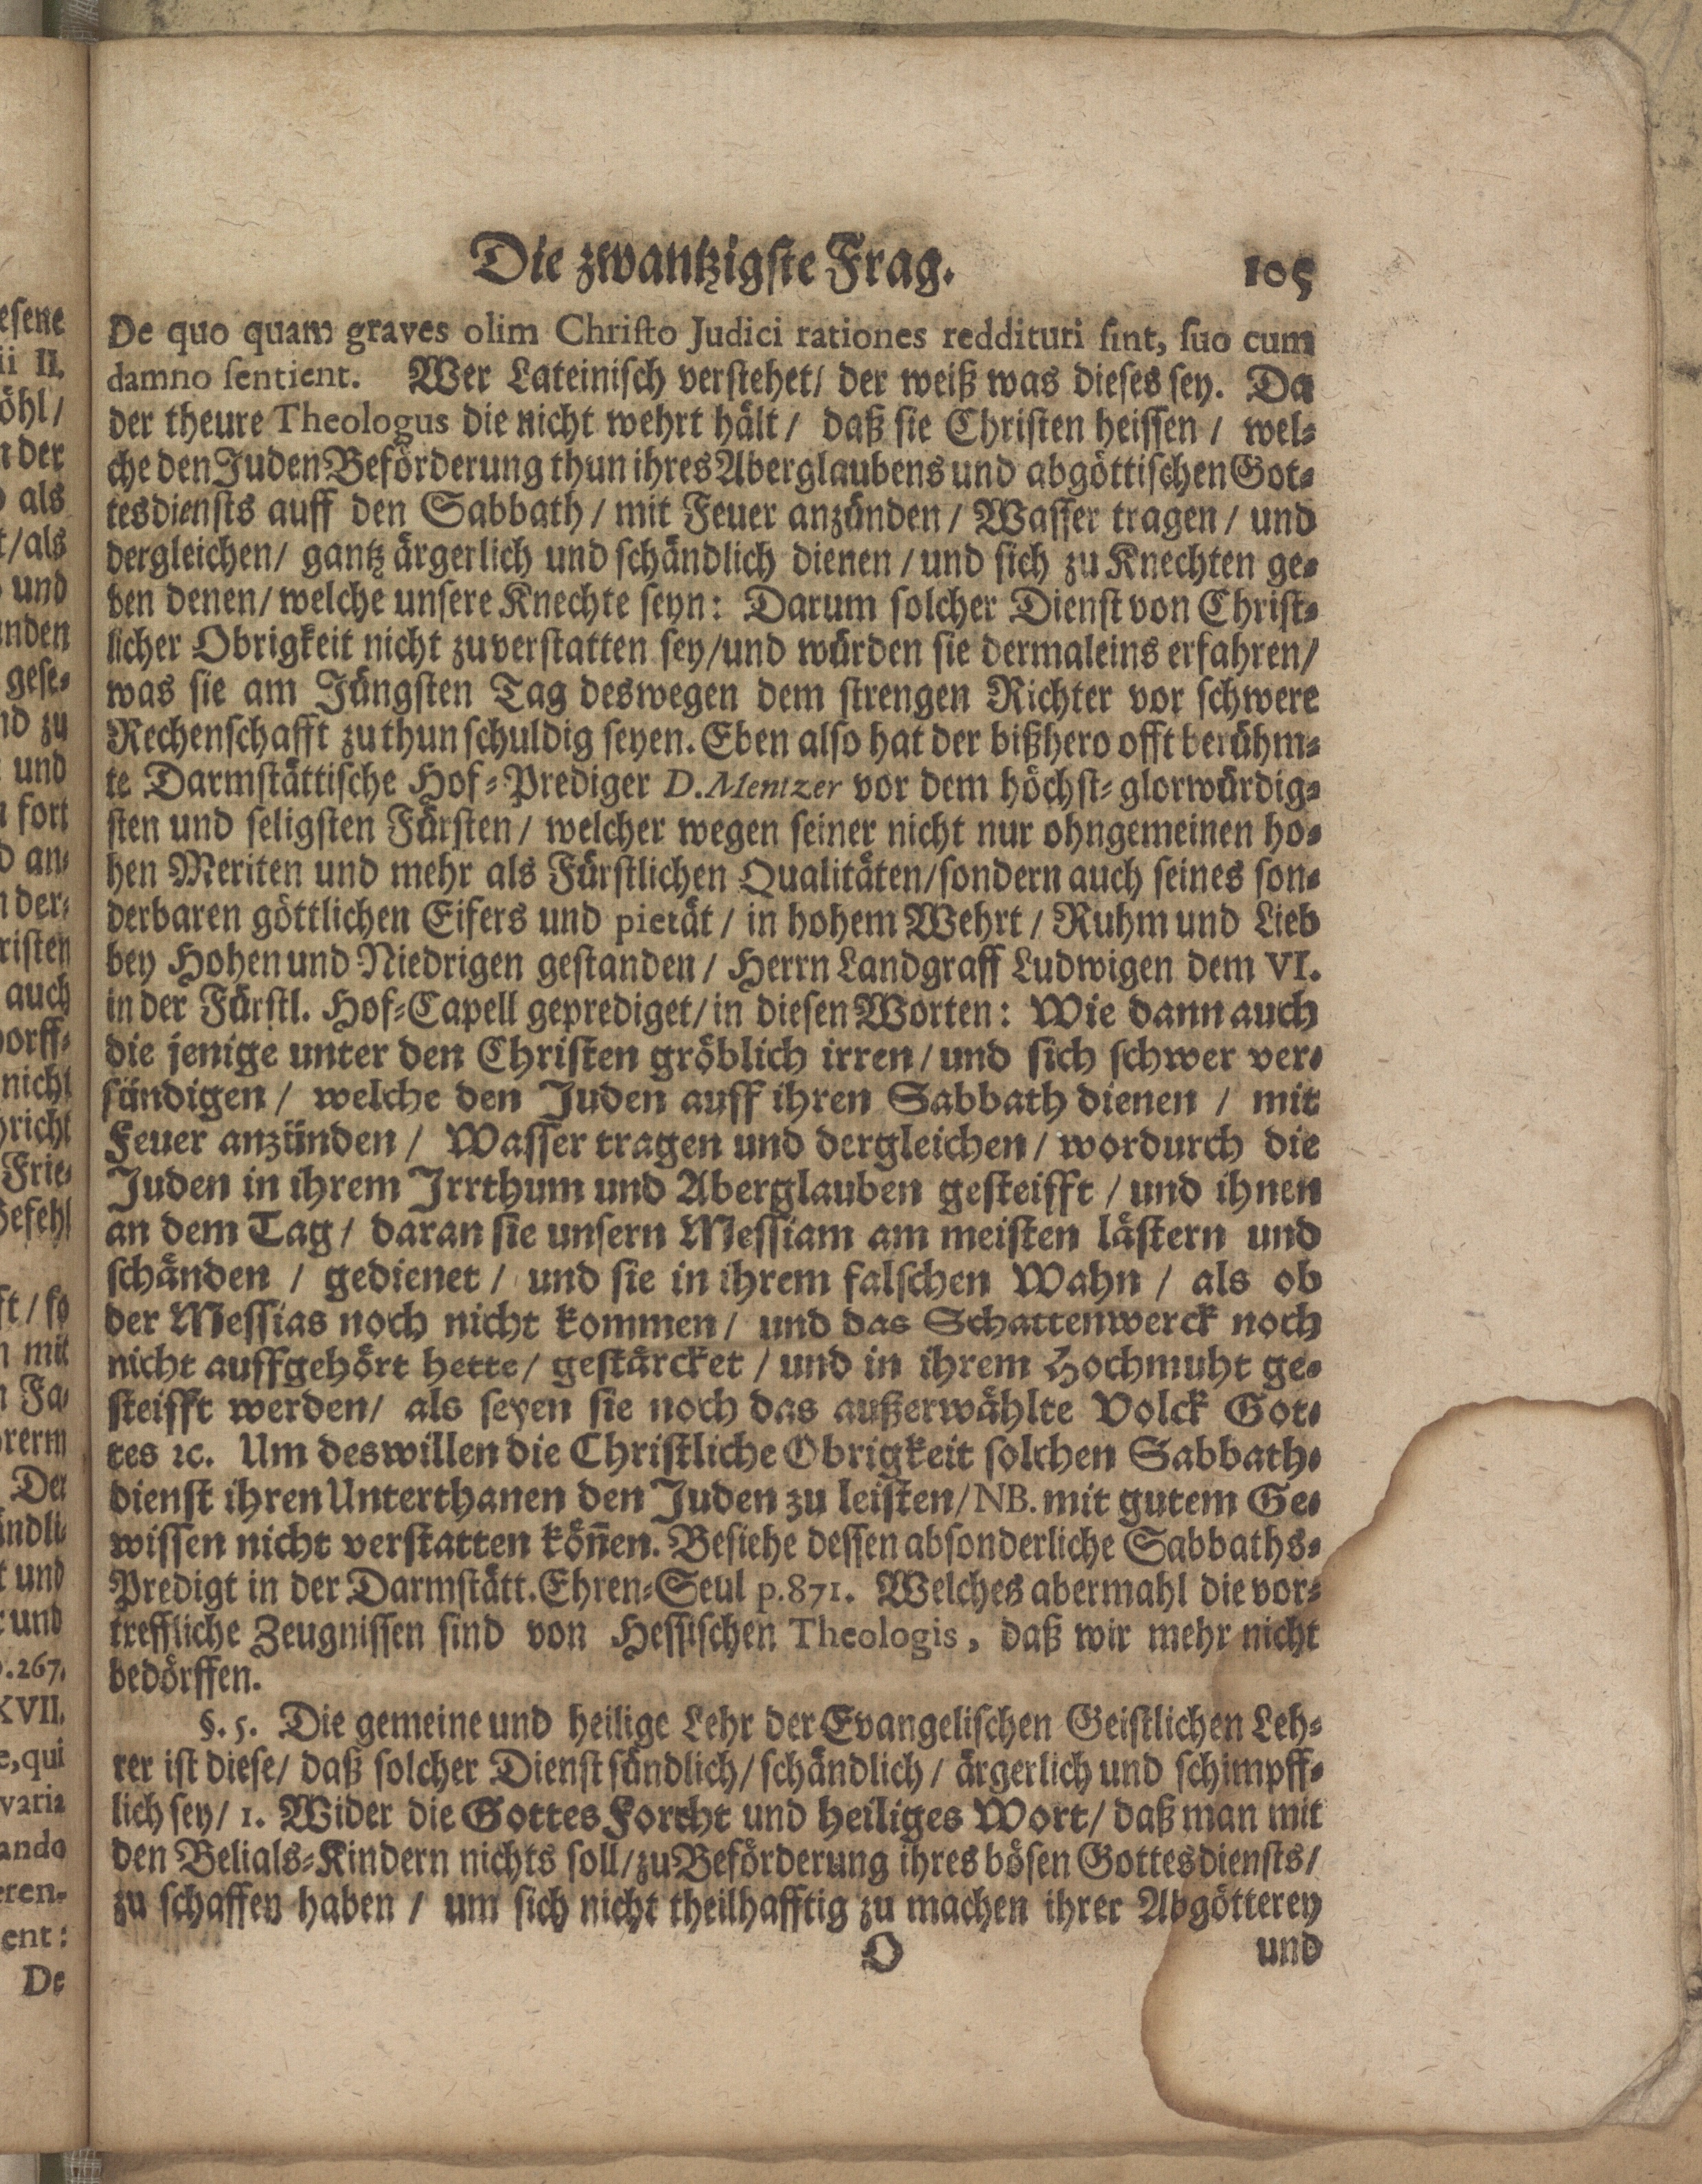 Die zwantzigste Frag. 105
De quo quam graves olim Christo Judici rationes reddituri sint, suo cum
damno sentient. Wer Lateinisch verstehet/ der weiß was dieses sey. Da
der theure Theologus die nicht wehrt hält/ daß sie Christen heissen/ wel-
che den Juden Beförderung thun ihres Aberglaubens und abgöttischen Got-
tesdiensts auff den Sabbath/ mit Feuer anzünden/ Wasser tragen/ und
dergleichen/ gantz ärgerlich und schändlich dienen/ und sich zu Knechten ge-
ben denen/ welche unsere Knechte seyn: Darum solcher Dienst von Christ-
licher Obrigkeit nicht zuverstatten sey/ und würden sie dermaleins erfahren/
was sie am Jüngsten Tag deswegen dem strengen Richter vor schwere
Rechenschafft zu thun schuldig seyen. Eben also hat der bißhero offt berühm-
te Darmstättische Hof-Prediger D. Mentzer vor dem höchst-glorwürdig-
sten und seligsten Fürsten/ welcher wegen seiner nicht nur ohngemeinen ho-
hen Meriten und mehr als Fürstlichen Qualitäten/ sondern auch seines son-
derbaren göttlichen Eifers und pietät/ in hohem Wehrt/ Ruhm und Lieb
bey Hohen und Niedrigen gestanden/ Herrn Landgraff Ludwigen dem VI.
in der Fürstl. Hof-Capell geprediget/ in diesen Worten: Wie dann auch
die jenige unter den Christen gröblich irren/ und sich schwer ver-
sündigen/ welche den Juden auff ihren Sabbath dienen/ mit
Feuer anzünden/ Wasser tragen und dergleichen/ wordurch die
Juden in ihrem Irrthum und Aberglauben gesteifft/ und ihnen
an dem Tag/ daran sie unsern Messiam am meisten lästern und
schänden/ gedienet/ und sie in ihrem falschen Wahn/ als ob
der Messias noch nicht kommen/ und das Schattenwerck noch
nicht auffgehört hette/ gestärcket/ und in ihrem Hochmuht ge-
steifft werden/ als seyen sie noch das außerwählte Volck Got-
tes ꝛc. Um deswillen die Christliche Obrigkeit solchen Sabbath-
dienst ihren Unterthanen den Juden zu leisten/ NB. mit gutem Ge-
wissen nicht verstatten köñen. Besiehe dessen absonderliche Sabbaths-
Predigt in der Darmstätt. Ehren-Seul p. 871. Welches abermahl die vor-
treffliche Zeugnissen sind von Hessischen Theologis, daß wir mehr nicht
bedörffen.
§. 5. Die gemeine und heilige Lehr der Evangelischen Geistlichen Leh-
rer ist diese/ daß solcher Dienst sündlich/ schändlich/ ärgerlich und schimpff-
lich sey/ 1. Wider die Gottes Forcht und heiliges Wort/ daß man mit
den Belials-Kindern nichts soll/ zu Beförderung ihres bösen Gottesdiensts/
zu schaffen haben/ um sich nicht theilhafftig zu machen ihrer Abgötterey
O und